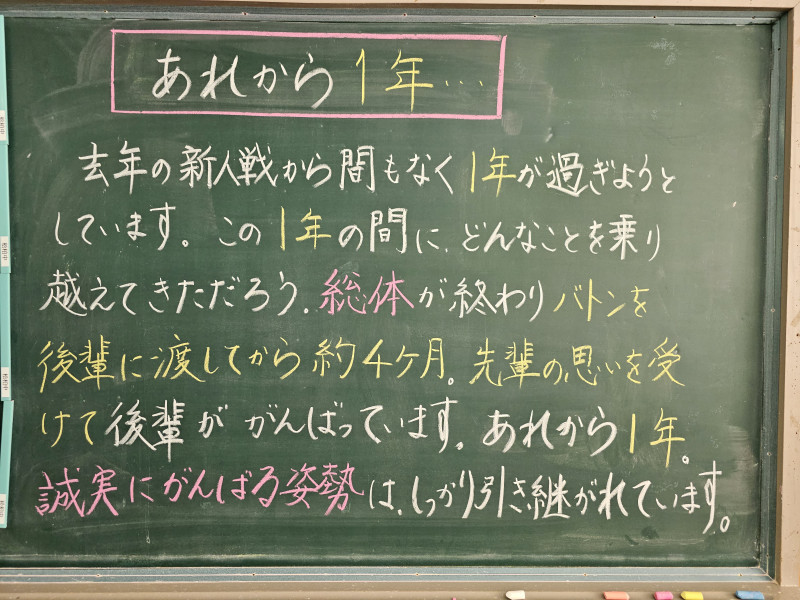 あれから1年…
去年の新人戦から間もなく1年が過ぎようと
しています。この1年の間に、どんなことを乗り
越えてきただろう。総体が終わりバトンを
後輩に渡してから約4ケ月。先輩の思いを受
けて後輩ががんばっています。あれから1年。
誠実にがんばる姿勢は、しっかり引き継がれています。